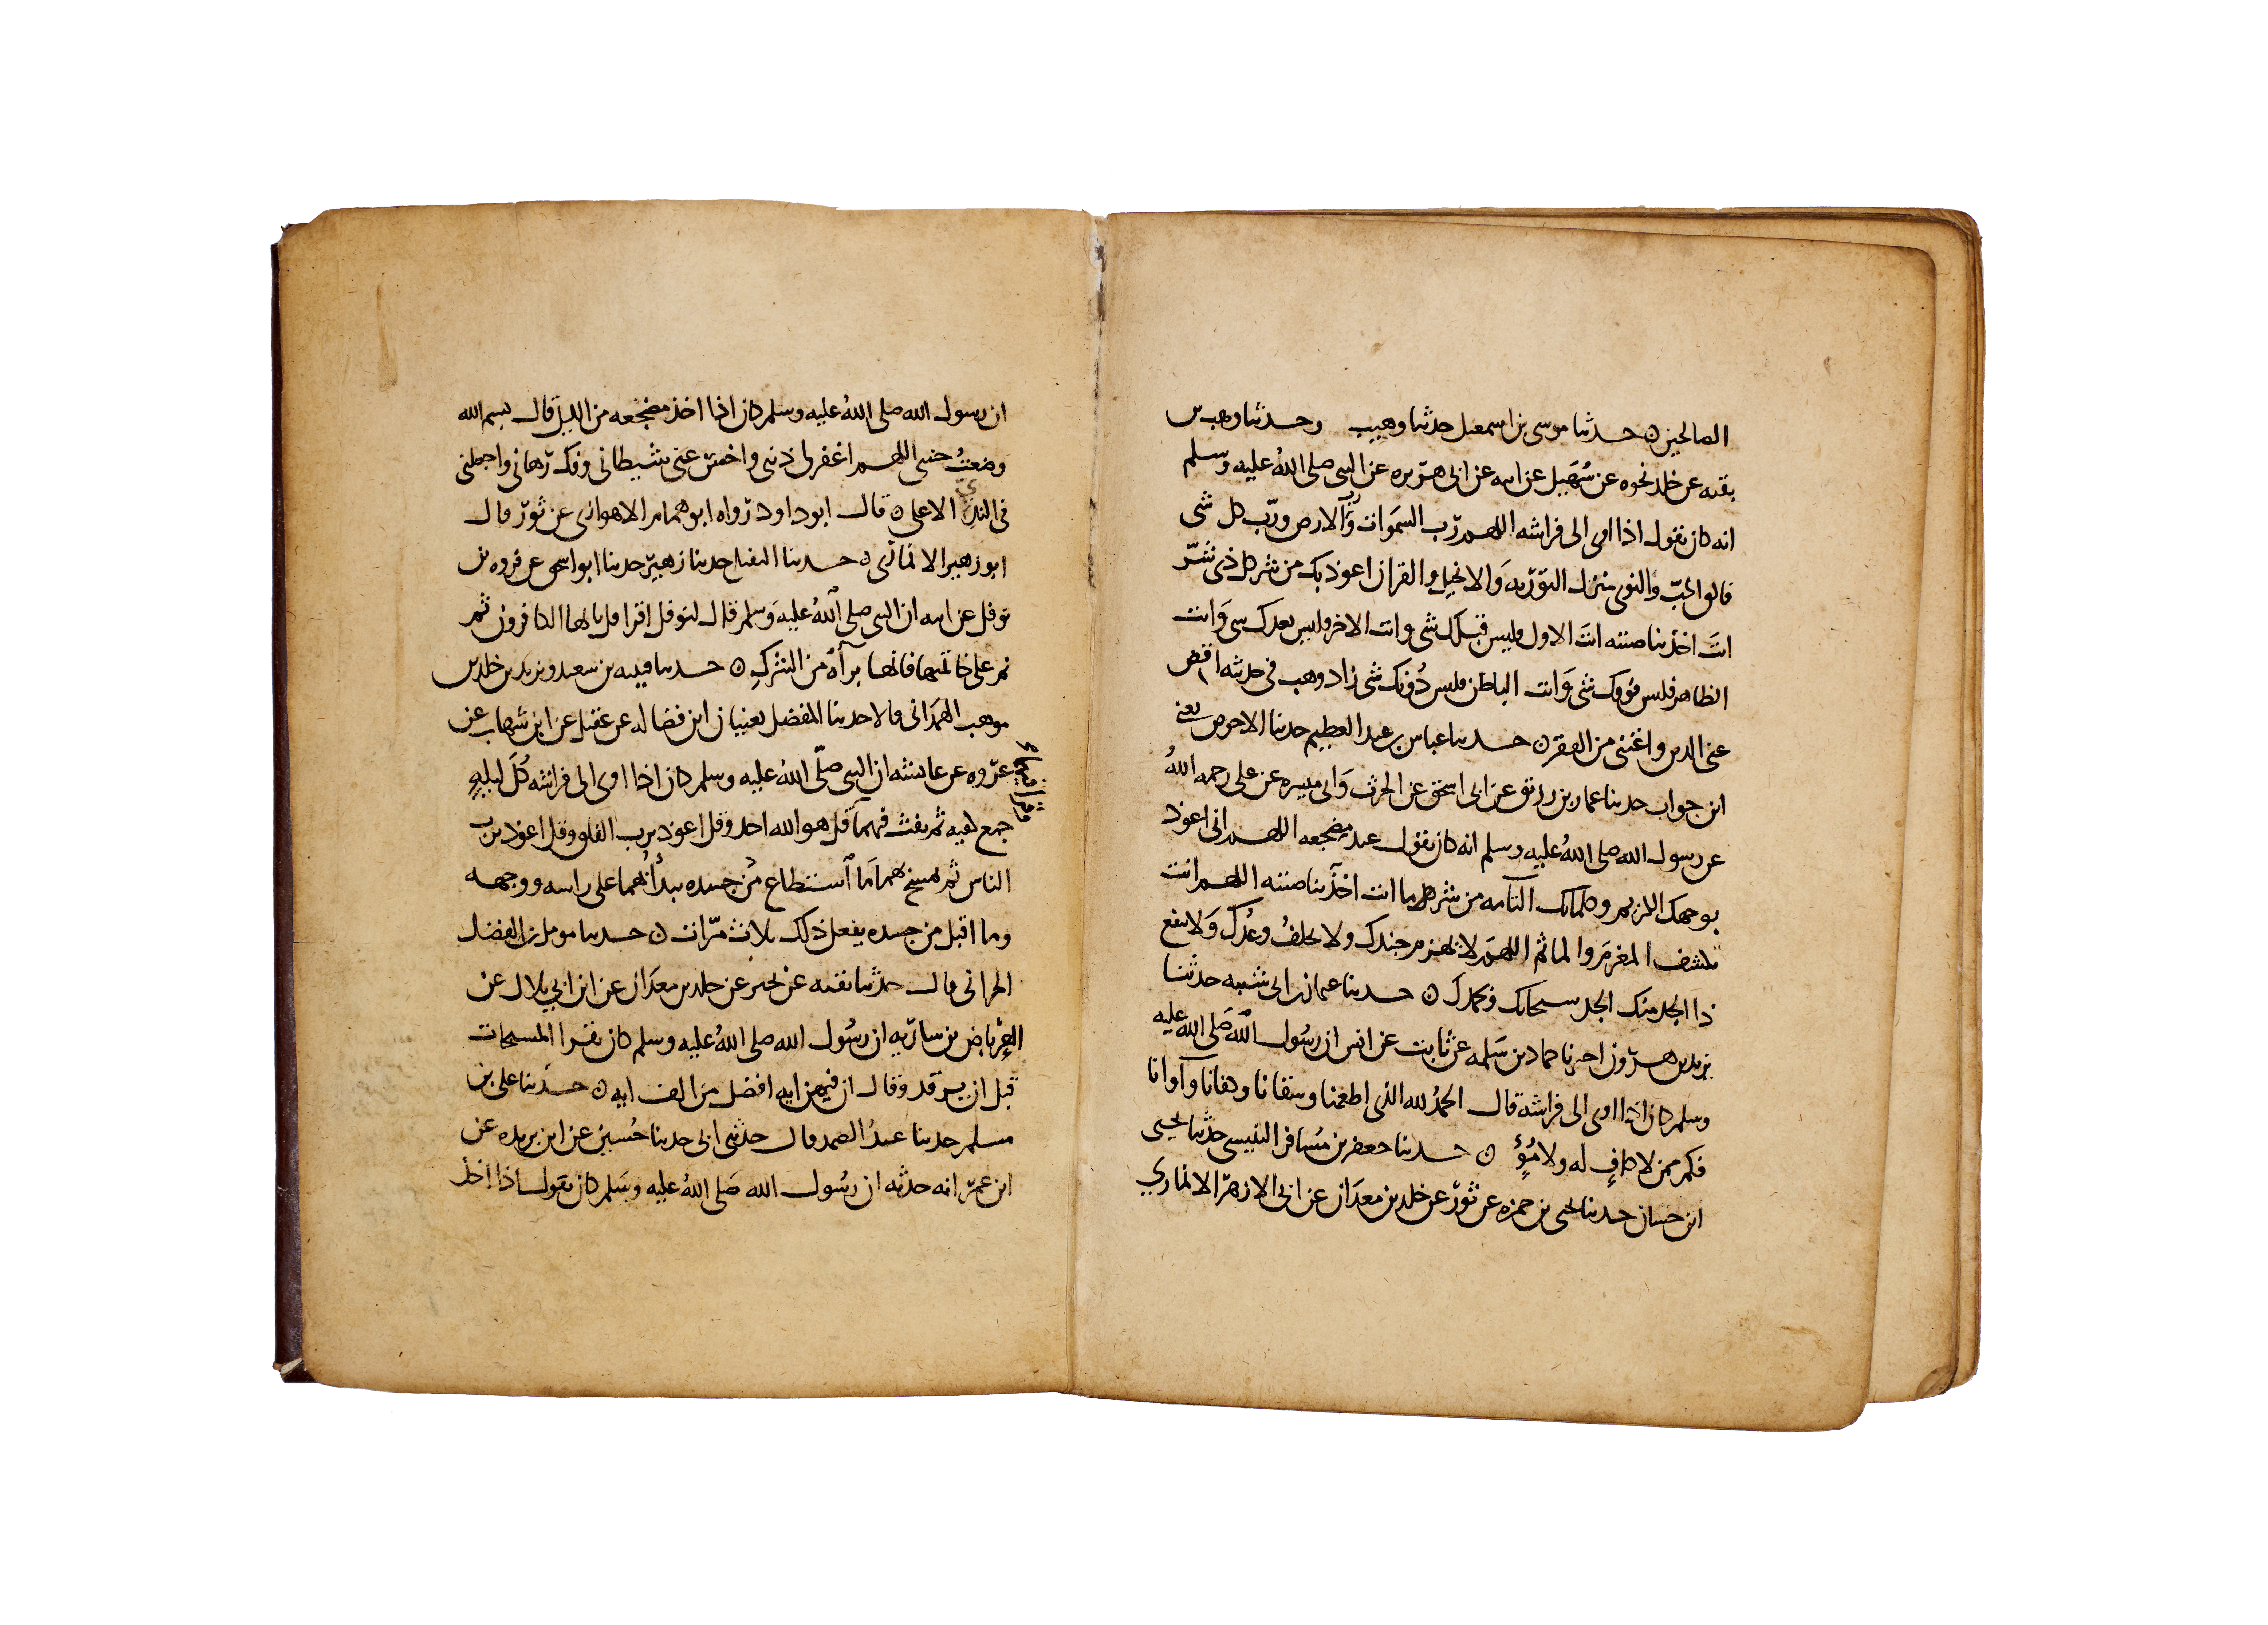 الصالحين ه حدثنا موسى بن اسمعيل حدثنا وهيب وحدثنا وهب بن
بقيه عن خلد نحوه عن سُهَيل عن ابيه عن ابي هريره عن النبي صلى اللهُ عليه وسلم
انه كان يقول اذا اوى الى فراشه اللهم رب السموات وَرَب الارض وربّ كل شى
فالق الحبّ والنوى منزل التوريه وَالانجيل والقران اعوذ بك من شر كل ذى شرّ
انتَ اخذ بناصيته انتَ الاول فليس قبلك شى وانت الاخر فليس بعدك شى وَانت
الظاهر فليس فوقك شى وَانت الباطن فليس دُونك شى زاد وهب في حديثه اقض
عني الدين واغنني من الفقر ه حدثنا عباس بن عبد العظيم حدثنا الاحوص يعني
ابن جواب حدثنا عمار بن رزيق عن ابي اسحق عن الحرث وَابي ميسره عن علي رحمه اللهُ
عن رسول الله صلى اللهُ عليه وسلم انه كان يقول عند مضجعه اللهم اني اعوذ
بوجهك الكريم وكلماتك التامه من شر كل ما انت اخذ بناصيته اللهم انت
تكشف المغرَم والماثم اللهمَ لا يهزم جندك ولا يخلفُ وعدُك وَلا ينفع
ذا الجد منك الجد سبحانك وبحمدك ه حدثنا عثمان بن ابي شيبه حدثنا
يزيد بن هرون اخبرنا حماد بن سَلمه عن ثابت عن انس ان رسُول الله صَلى الله عليه
وسلم كان اذا اوى الى فراشة قال الحمدُ لله الذي اطعمنا وسقانا وكفانا وآوانا
فكم ممن لا كافِ له ولا مُؤٍ ه حدثنا جعفر بن مُسافر التنيسي حدثنا يحيى
ابن حسان حدثنا يحيى بن حمزه عن ثور عن خلد بن معدَان عن ابي الازهر الانماري
ان رسول الله صلى اللهُ عليه وسلم كان اذا اخذ مضجعه من الليل قال بسم الله
وضعتُ جنبي اللهم اغفر لى ذنبي واخس عني شيطاني وفك رهاني واجعلني
في النديّ الاعلى ه قال ابو داود رواه ابو همام الاهوازي عن ثور قال
ابو زهير الانماري ه حدثنا النفيلي حدثنا زهير حدثنا ابو اسحق عن فروه بن
نوفل عن ابيه ان النبي صلى اللهُ عليه وَسلم قال لنوفل اقرا قل يا ايها الكافرون ثم
نم على خاتمتها فانها برآة من الشرك ه حدثنا قتيبه بن سعيد ويزيد بن خلد بن
موهب الهَمدَاني قالا حدثنا المفضل يعنيان ابن فضاله عن عقيل عن ابن شهاب عن
عروه عن عائشه ان النبي صلّى اللهُ عليه وسلم كان اذا اوى الى فراشه كُلَ ليلةٍ
جمع كفيه ثم نفث فيهما قل هو الله احد وقل اعوذ برب الفلق وقل اعوذ برب
الناس ثم يمسح بهما مَا استطاع من جسده يبدأُ بهما على راسه ووجهه
وما اقبل من جسده يفعل ذلك ثلاث مرّات ه حدثنا مومل بن الفضل
الحراني قال حدثنا بقيه عن بحير عن خلد بن معدَان عن ابن ابي بلال عن
العِرْبَاض بن ساريه ان رسُول الله صلى اللهُ عليه وسلم كان يقرا المسبحات
قبل ان يرقد وقال ان فيهن ايه افضل من الف ايه ه حدثنا علي بن
مسلم حدثنا عبدُ الصمد قال حدثني ابي حدثنا حُسين عن ابن بريده عن
ابن عمر انه حدثه ان رسُول الله صَلى اللهُ عليه وسَلم كان يقول اذا اخذ